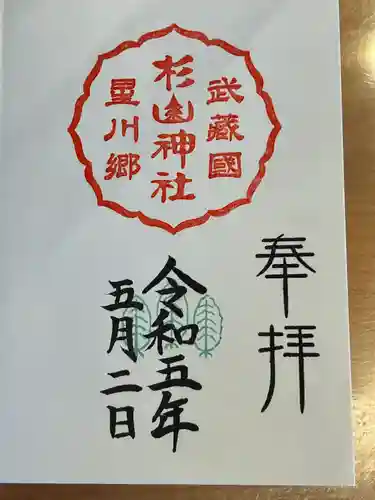 奉拝
武藏國
杉山神社
星川郷
令和五年
五月二日